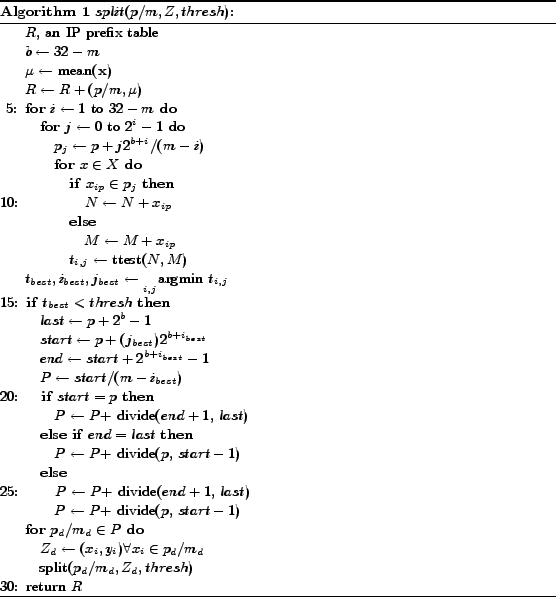 Algorithm 1 split(p/m, Z, thresh):
R, an IP prefix table
b ← 32 − m
μ ← mean(x)
R ← R + (p/m, μ)
5: for i ← 1 to 32 − m do
for j ← 0 to 2^i − 1 do
p_j ← p + j2^{b+i}/(m − i)
for x ∈ X do
if x_{ip} ∈ p_j then
10: N ← N + x_{ip}
else
M ← M + x_{ip}
t_{i,j} ← ttest(N, M)
t_{best}, i_{best}, j_{best} ← argmin_{i,j} t_{i,j}
15: if t_{best} < thresh then
last ← p + 2^b − 1
start ← p + (j_{best})2^{b+i_{best}}
end ← start + 2^{b+i_{best}} − 1
P ← start/(m − i_{best})
20: if start = p then
P ← P+ divide(end + 1, last)
else if end = last then
P ← P+ divide(p, start − 1)
else
25: P ← P+ divide(end + 1, last)
P ← P+ divide(p, start − 1)
for p_d/m_d ∈ P do
Z_d ← (x_i, y_i)∀x_i ∈ p_d/m_d
split(p_d/m_d, Z_d, thresh)
30: return R